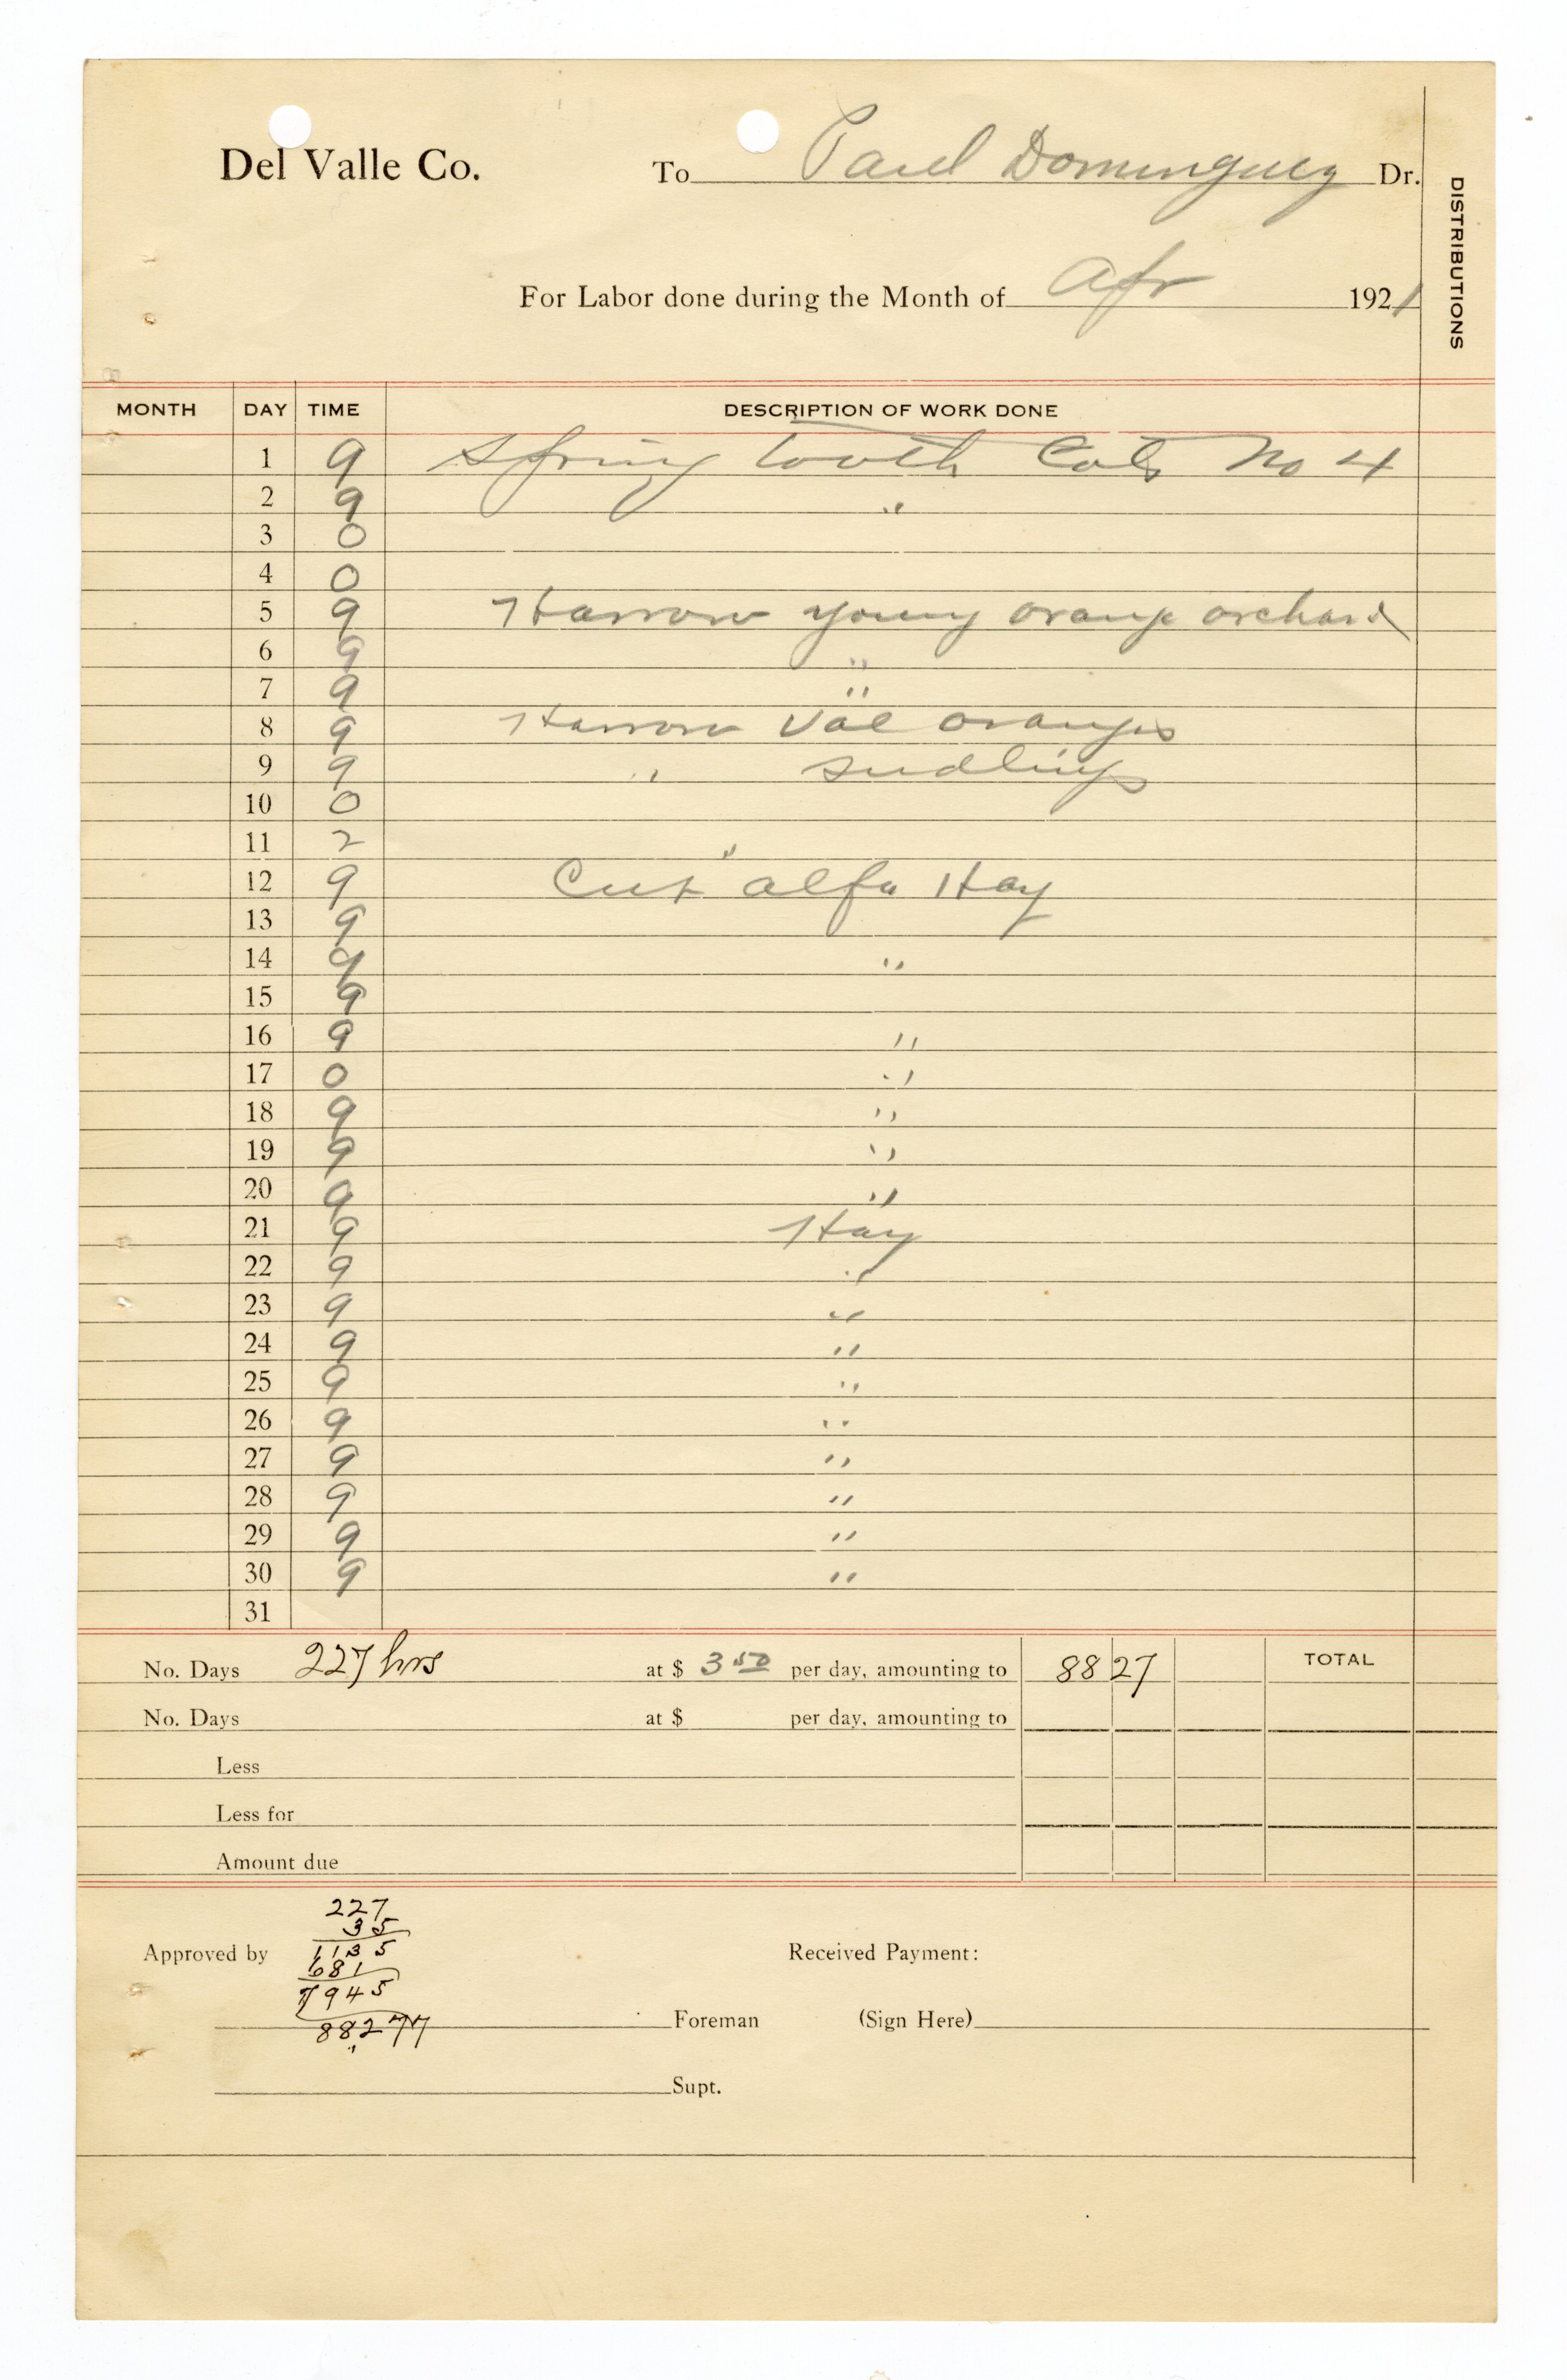 Del Valle Co. To Paul Dominguez Dr.
DISTRIBUTIONS
For Labor done during the Month of Apr 1921
MONTH DAY TIME DESCRIPTION OF WORK DONE
1 9 Spring tooth No 4
2 9 "
3 0
4 0
5 9 Harrow young orange orchard
6 9 "
7 9 "
8 9 Harrow Val oranges
9 9 " seedlings
10 0
11 2 "
12 9 Cut alfa Hay
13 9
14 9 "
15 9
16 9 "
17 0 "
18 9 "
19 9 "
20 9 "
21 9 Hay
22 9 "
23 9 "
24 9 "
25 9 "
26 9 "
27 9 "
28 9 "
29 9 "
30 9 "
31
No. Days 227 hrs at $ 3 50 per day, amounting to 88 27 TOTAL
No. Days at $ per day, amounting to
Less
Less for
Amount due
227
35
Approved by 1135 Received Payment:
681
7945
88277 Foreman (Sign Here)
Supt.